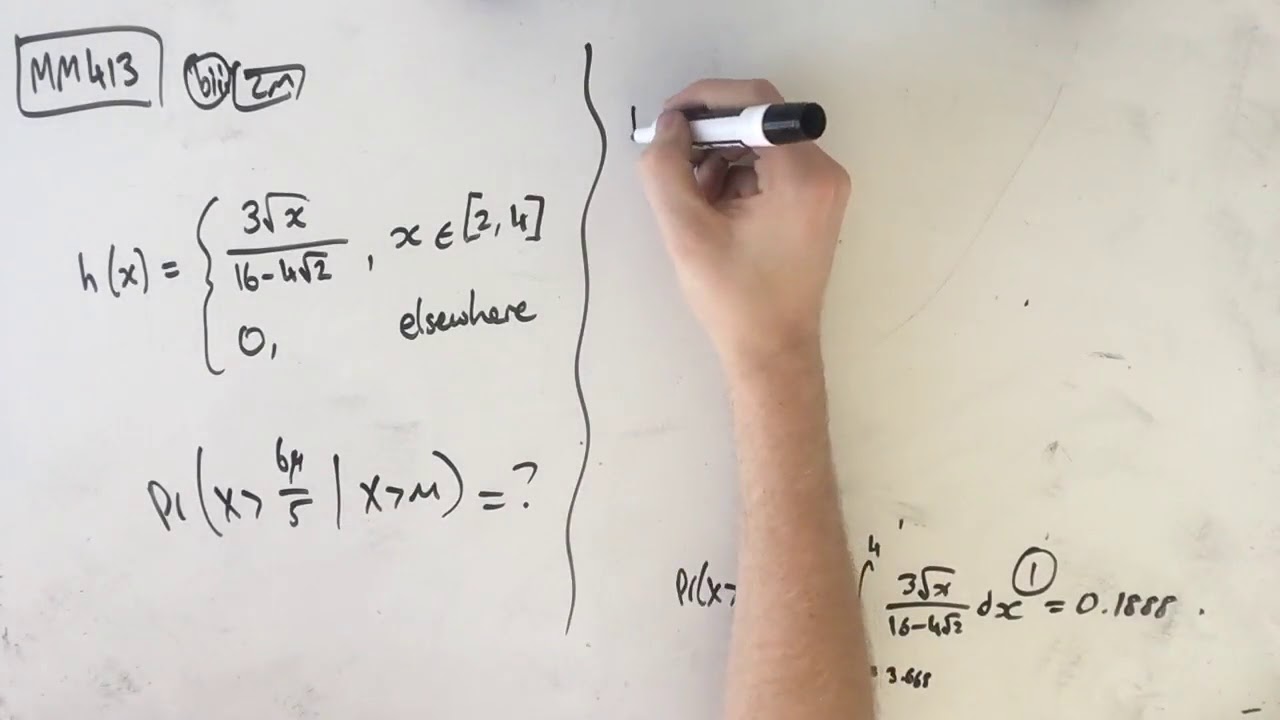 MM413 bii 2M
h(x) = { 3√x / 16-4√2 , x ∈ [2,4]
0, elsewhere
Pr(X> 6μ/5 | X>μ) = ?
Pr(X> ∫ 4 3√x / 16-4√2 dx ① = 0.1888 .
3.668